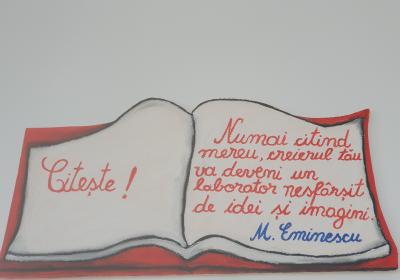 Citește!
Numai citind
mereu, creierul tău
va deveni un
laborator nesfârșit
de idei și imagini.
M. Eminescu